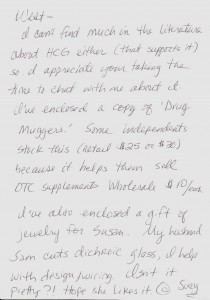 West -
I can't find much in the literature
about HCG either (that supports it)
so I appreciate your taking the
time to chat with me about it
I've enclosed a copy of 'Drug
Muggers.' Some independents
stock this (retail $25 or $30)
because it helps them sell
OTC supplements Wholesale $10/
I've also enclosed a gift of
jewelry for Susan. My husband
Sam cuts dichroic glass, I help
with design/wiring Isn't it
pretty?! Hope she likes it ☺ Suzy